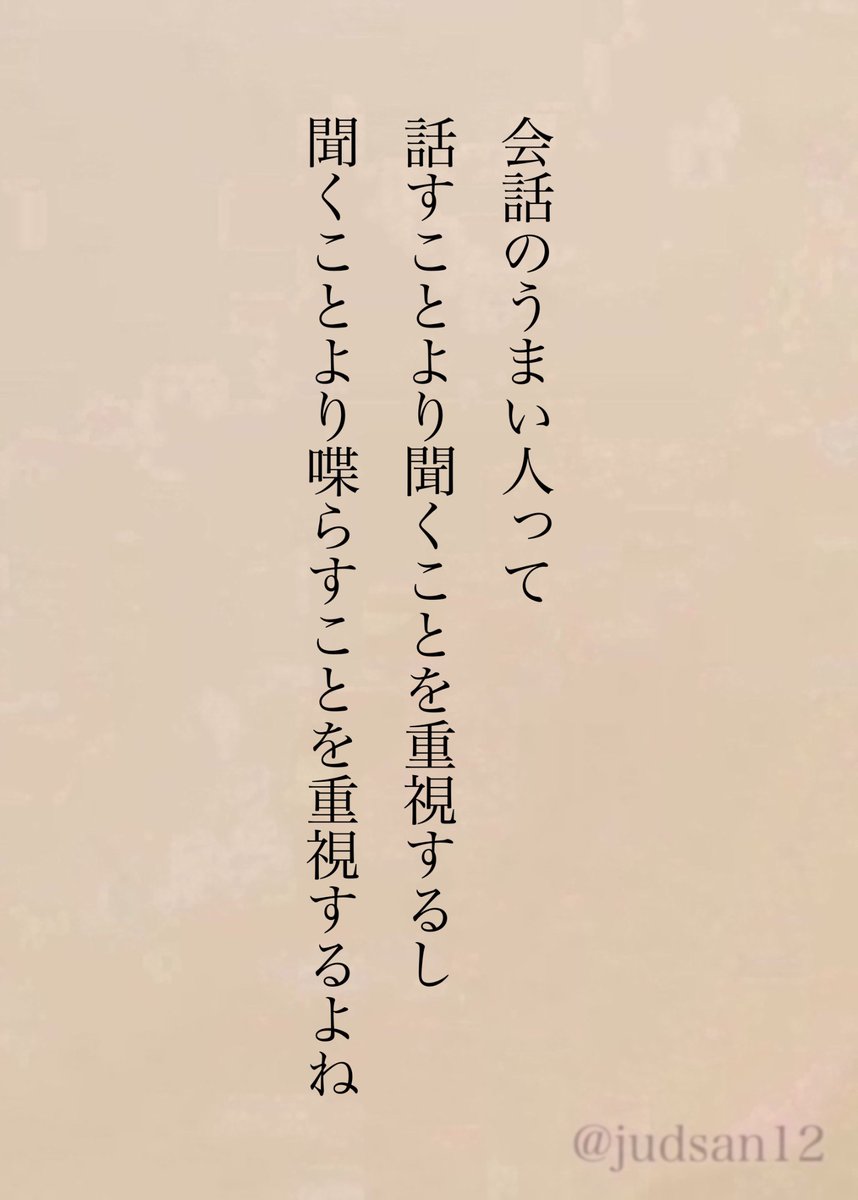 会話のうまい人って
話すことより聞くことを重視するし
聞くことより喋らすことを重視するよね
@judsan12